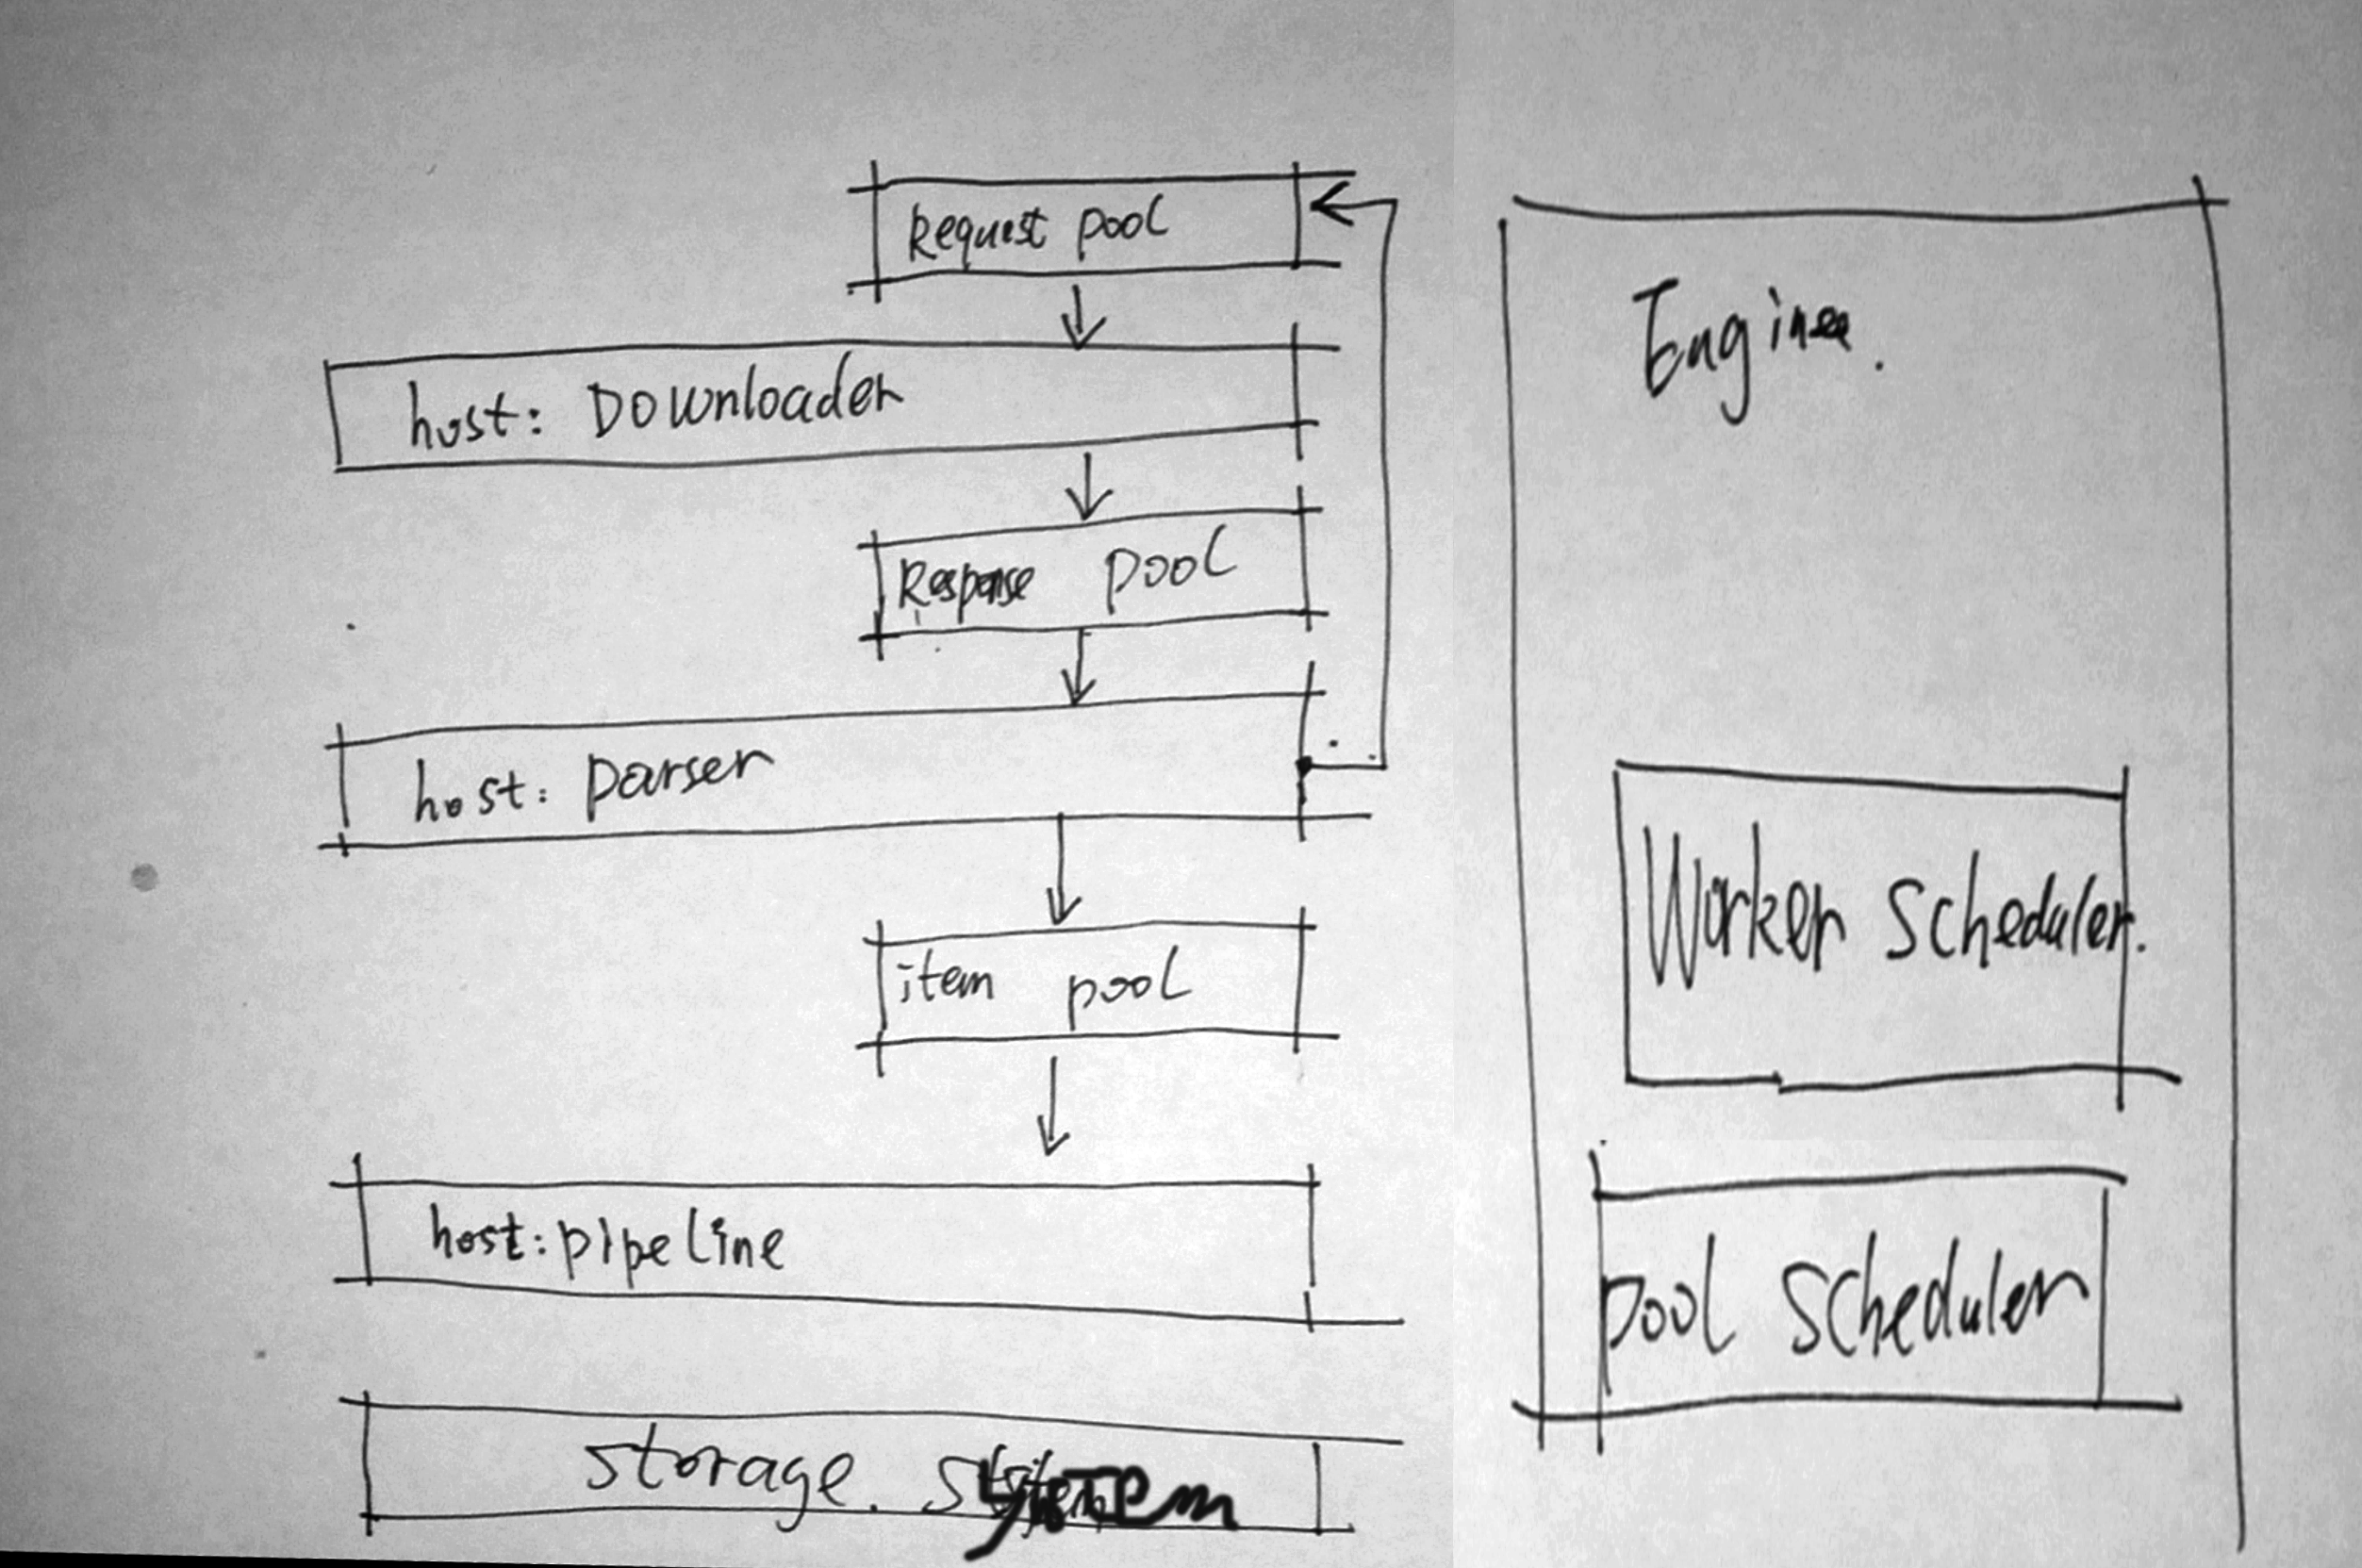 Request pool
host: Downloader
Response pool
host: parser
item pool
host: pipeline
storage. system
Engine.
Worker Scheduler.
pool Scheduler